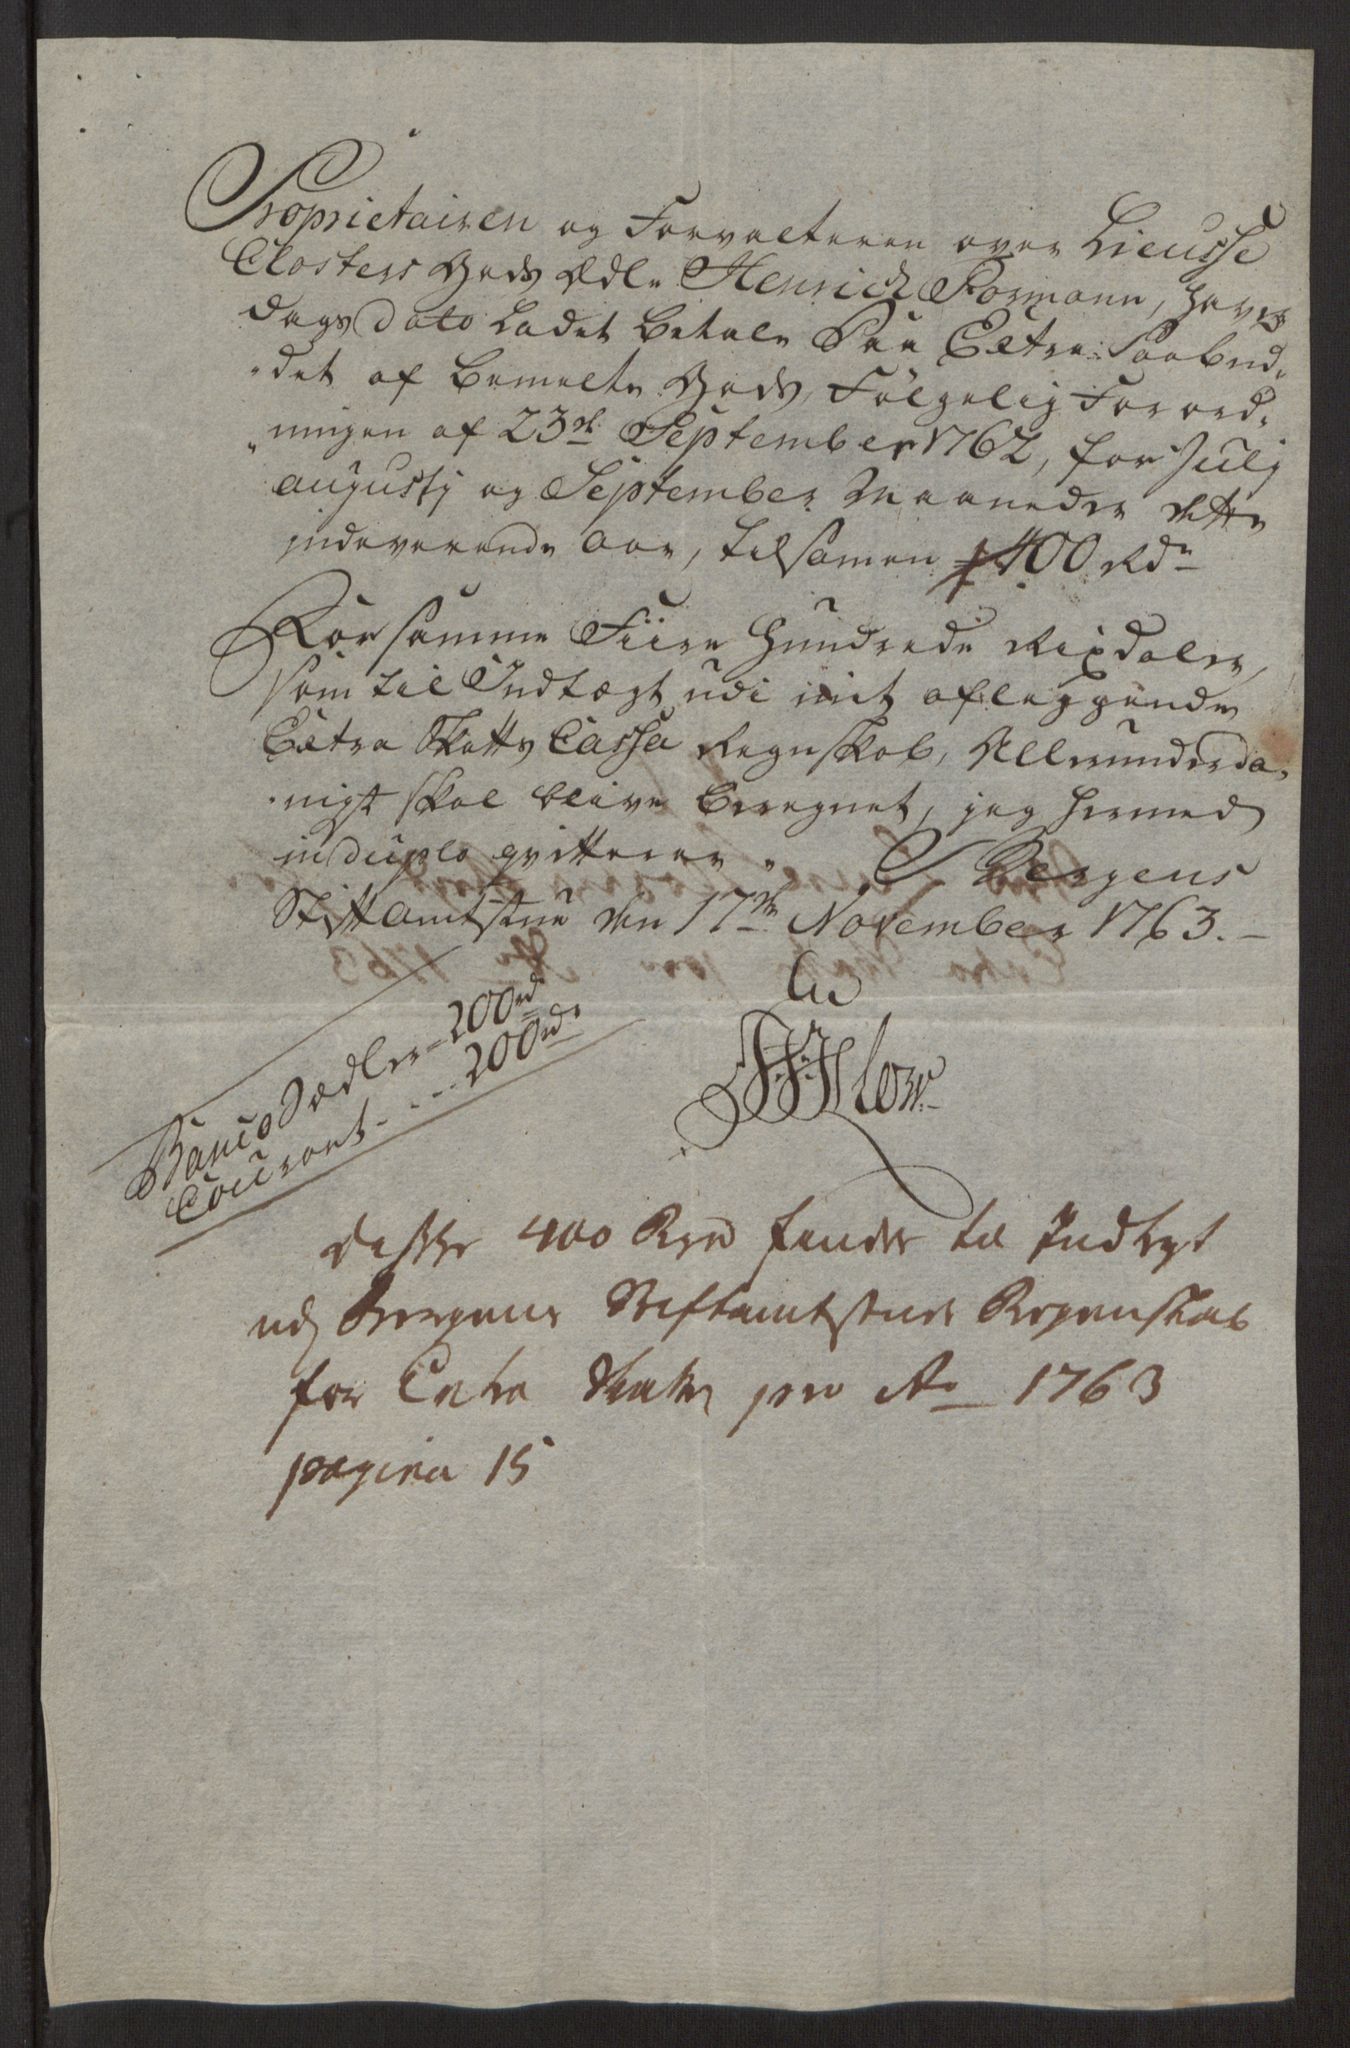 Proprietairen og Forvalteren over Lieusse
Closters Gods Ædle Henrich Formann, haver
dags dato ladet betale Paa Extra Paabud,,
,,det af bemelte Gods, Følgelig Forord,,
,,ningen af 23de September 1762, for Julij
augustij og September Maaneder dette
indeverende Aar, tilsamen 400 Rdr
For samme Fiire Hundrede Rixdaler,
som til Indtægt udi mit aflæggende
Extra Skatts Cassa Regnskab, Allerunderda,,
,,nigst skal blive beregnet, jeg hermed
in duplo qvitterer.      Bergens
Stiftamtstue den 17de November 1763.
Banco Sedler 200rd
Courant - - - 200rd
Disse 400 Rdr findes til Indtegt
udj Bergens Stiftamtstues Regenskab
for Extra Skatten pro Ao 1763
pagina 15